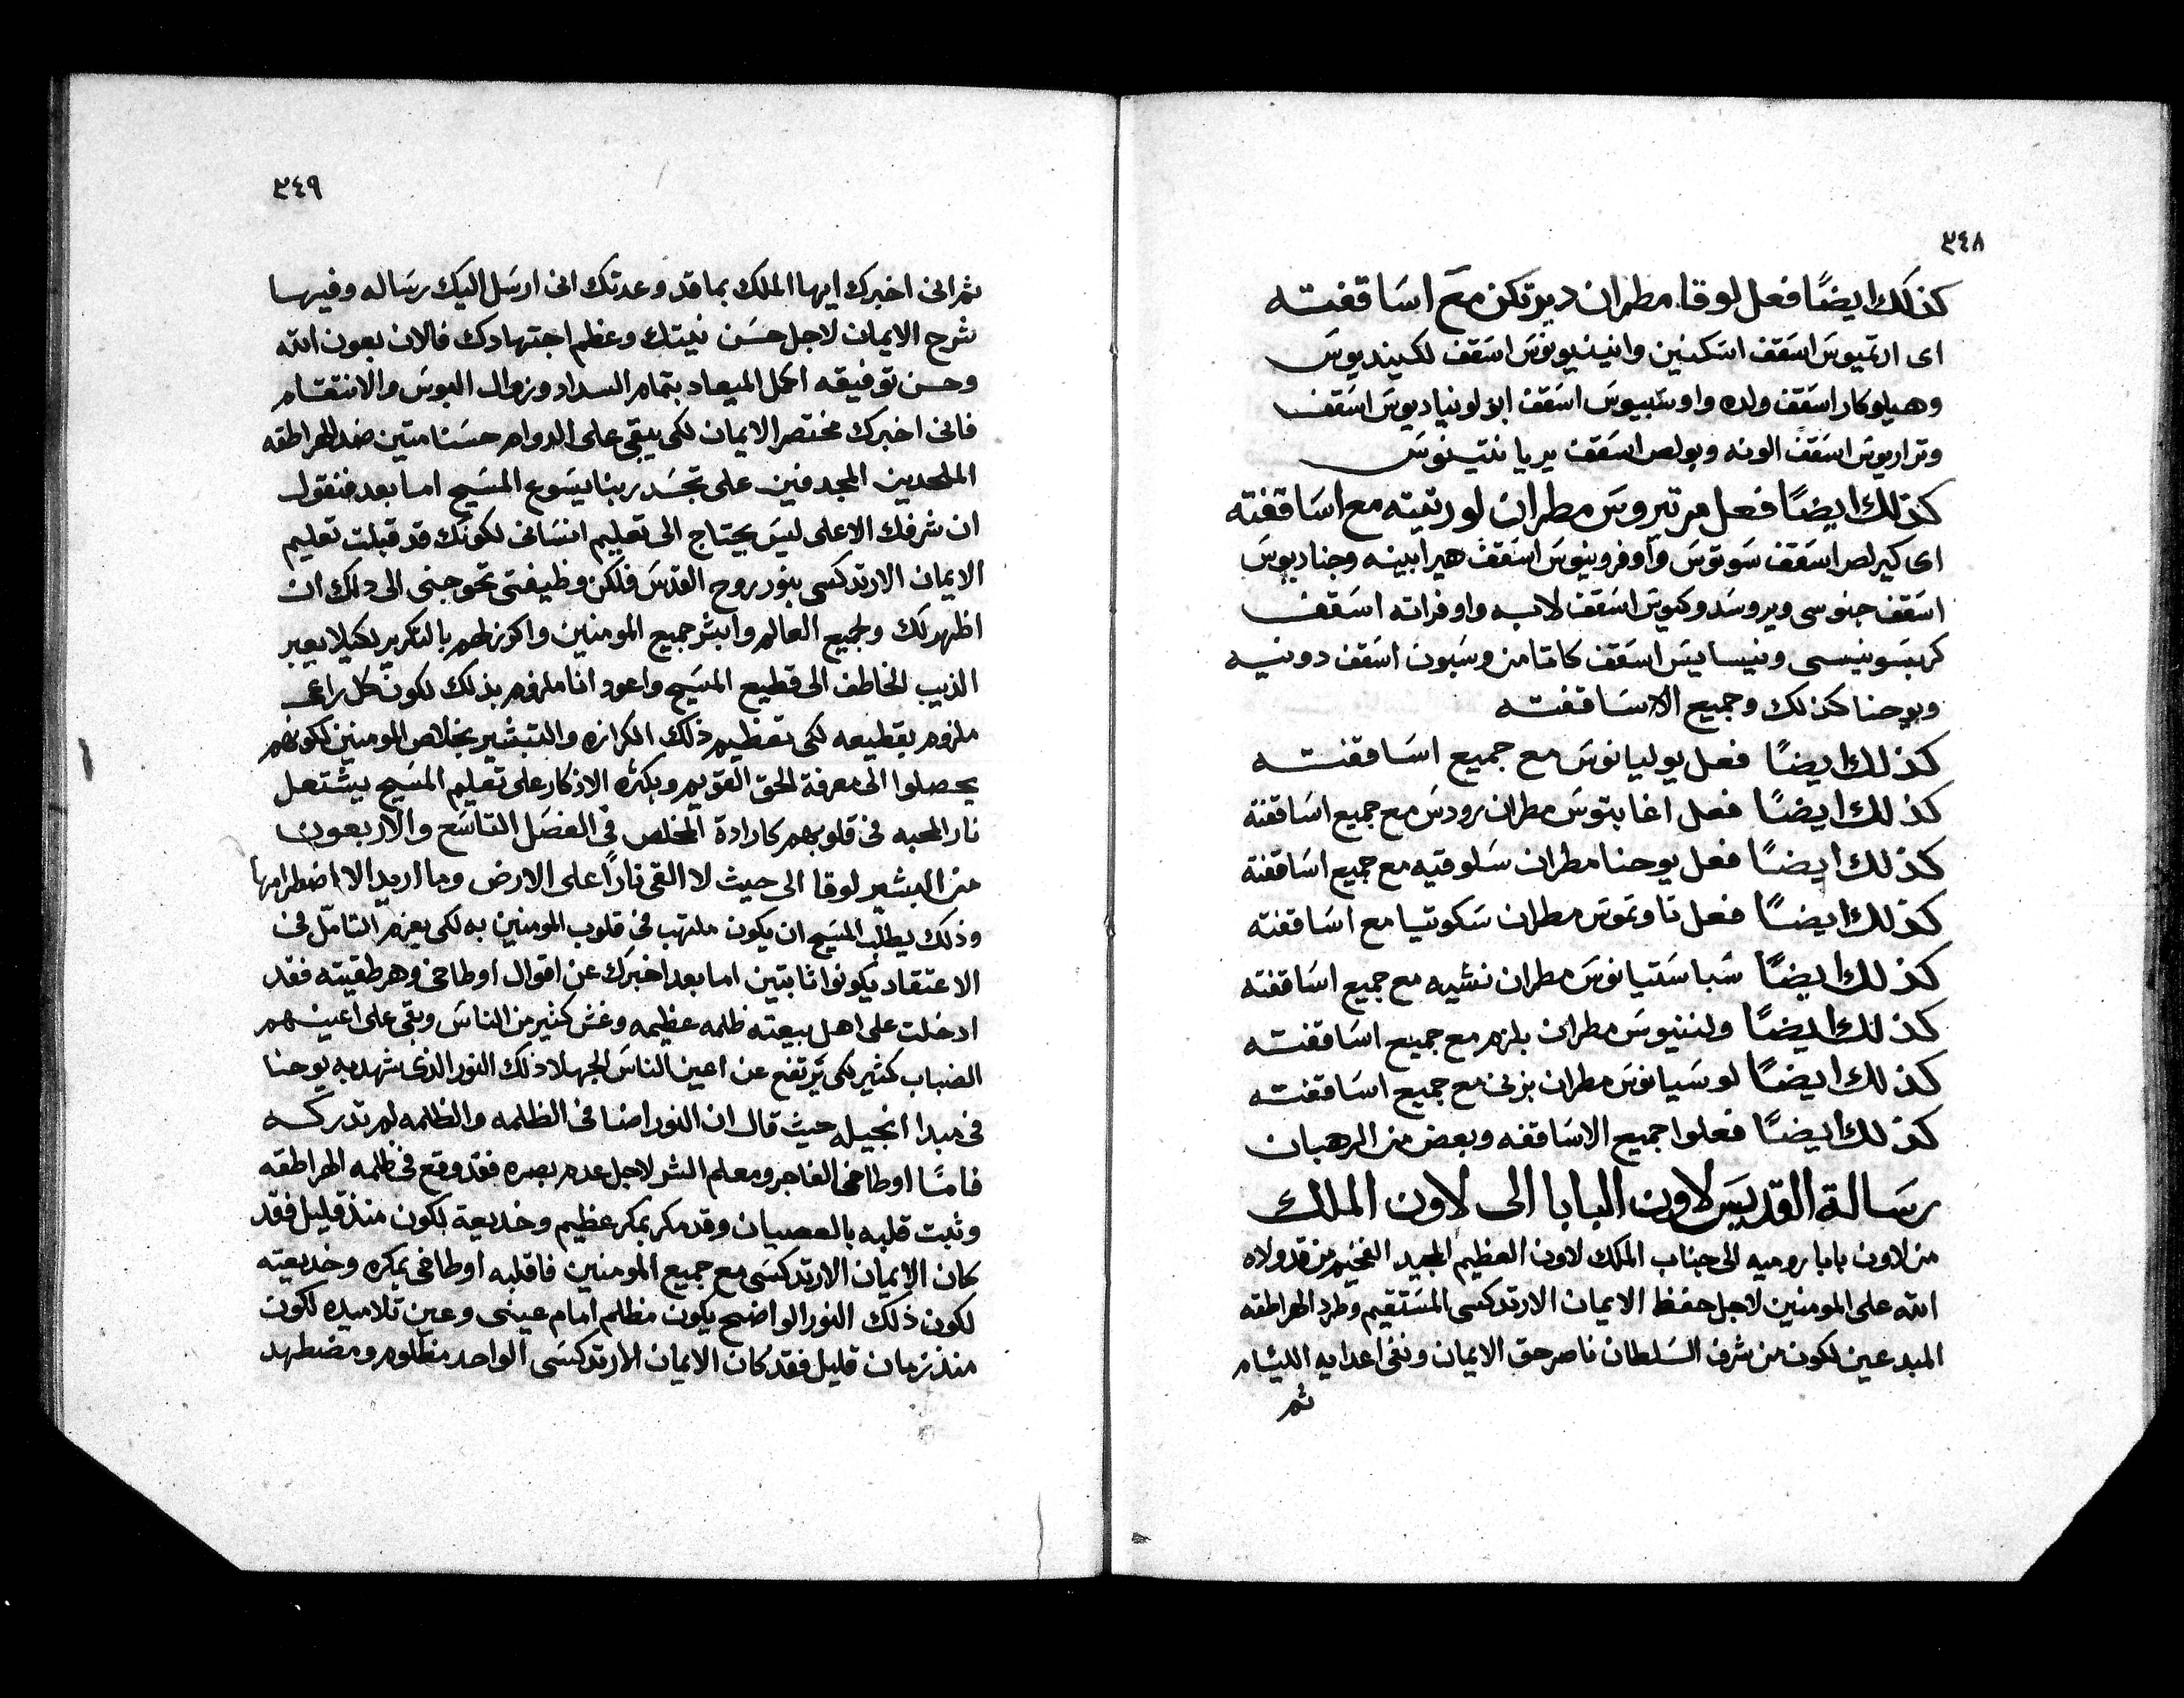 ٣٤٨
كذلك ايضًا فعل لوقا مطران ديرتكن مع اساقفته
اى ارتميوس اسقف اسكنين وانينيونس اسقف لكينديوس
وهيلوكار اسقف ولده واوسبيوس اسقف ابولونياديوس اسقف
وتراريوس اسقف الونه وبولص اسقف يريانتينوس
كذلك ايضًا فعل مرتيروس مطران لورتيته مع اساقفته
اى كيرلص اسقف سوتوس واوفرونيوس اسقف هيرابينه وجناديوس
اسقف جنوسى ويروسدوكيوس اسقف لابه واوفراته اسقف
كربسونيسى ونيسايس اسقف كامتامن وسبون اسقف دونيه
ويوحنا كذلك وجميع الاساقفته
كذلك ايضًا فعل يوليانوس مع جميع اساقفته
كذلك ايضًا فعل اغابتوس مطران رودس مع جميع اساقفته
كذلك ايضًا فعل يوحنا مطران سلوقيه مع جميع اساقفته
كذلك ايضًا فعل تاوتموس مطران سكوتيا مع اساقفته
كذلك ايضًا شباستيانوس مطران نشيه مع جميع اساقفته
كذلك ايضًا ولنتيوس مطران بلزم مع جميع اساقفته
كذلك ايضًا لوسيانوس مطران بزنى مع جميع اساقفته
كذلك ايضًا فعلوا جميع الاساقفه وبعض من الرهبان
رسالة القديس لاون البابا الى لاون الملك
من لاون بابا روميه الى جناب الملك لاون العظيم المجيد الفخيم من قد ولاه
الله على المومنين لاجل حفظ الايمان الارتدكسى المستقيم وطرد الهراطقه
المبدعين لكون من شرف السلطان ناصر حق الايمان ونفى اعدايه اللئام
ثم
٣٤٩
ثم انى اخبرك ايها الملك بما قد وعدتك انى ارسل اليك رساله وفيها
شرح الايمان لاجل حسن نيتك وعظم اجتهادك فالان بعون الله
وحسن توفيقه اكمل الميعاد بتمام السداد وزوال البوس والانتقام
فانى اخبرك مختصر الايمان لكى يبقى على الدوام حسنا متين ضد الهراطقه
الملحدين المجدفين على تجسد ربنا يسوع المسيح اما بعد فنقول
ان شرفك الاعلى ليس يحتاج الى تعليم انسانى لكونك قد قبلت تعليم
الايمان الارتدكسى بنور روح القدس فلكن وظيفتى تحوجنى الى دلك ان
اظهر لك ولجميع العالم وابشر جميع المومنين واكرز لهم بالتكرير لكيلا يعبر
الذيب الخاطف الى قطيع المسيح واعود انا ملزوم بذلك لكون كل راعى
ملزوم بقطيعه لكى تعظيم ذلك الكرازه والتبشير بخلاص المومنين لكونهم
يحصلوا الى معرفة الحق القويم وبكثره الاذكار على تعليم المسيح يشتعل
نار المحبه فى قلوبهم كارادة المخلص فى الفصل التاسع والاربعون
من البشير لوقا الى حيث لا القى نارًا على الارض وما اريد الا اضطرامها
وذلك يطلب المسيح ان يكون ملتهب فى قلوب المومنين به لكى بعزم التامل فى
الاعتقاد يكونوا ثابتين اما بعد اخبرك عن اقوال اوطاخى وهرطقيته فقد
ادخلت على اهل بيعته ظلمه عظيمه وغش كثير من الناس وبقى على اعينهم
الضباب كثير لكى يرتفع عن اعين الناس الجهلا ذلك النور الذى شهد به يوحنا
فى مبدا انجيله حيث قال ان النور اضا فى الظلمه والظلمه لم تدركه
فامًا اوطاخى الفاجر ومعلم الشر لاجل عدم بصره فقد وقع فى ظلمه الهراطقه
وثبت قلبه بالعصيان وقد مكر بمكر عظيم وخديعة لكون منذ قليل فقد
كان الايمان الارتدكسى مع جميع المومنين فاقلبه اوطاخى بمكره وخديعته
لكون ذلك النور الواضح يكون مظلم امام عينى وعين تلاميده لكون
منذ زمان قليل فقد كان الايمان الارتدكسى الواحد مظلوم ومضطهد